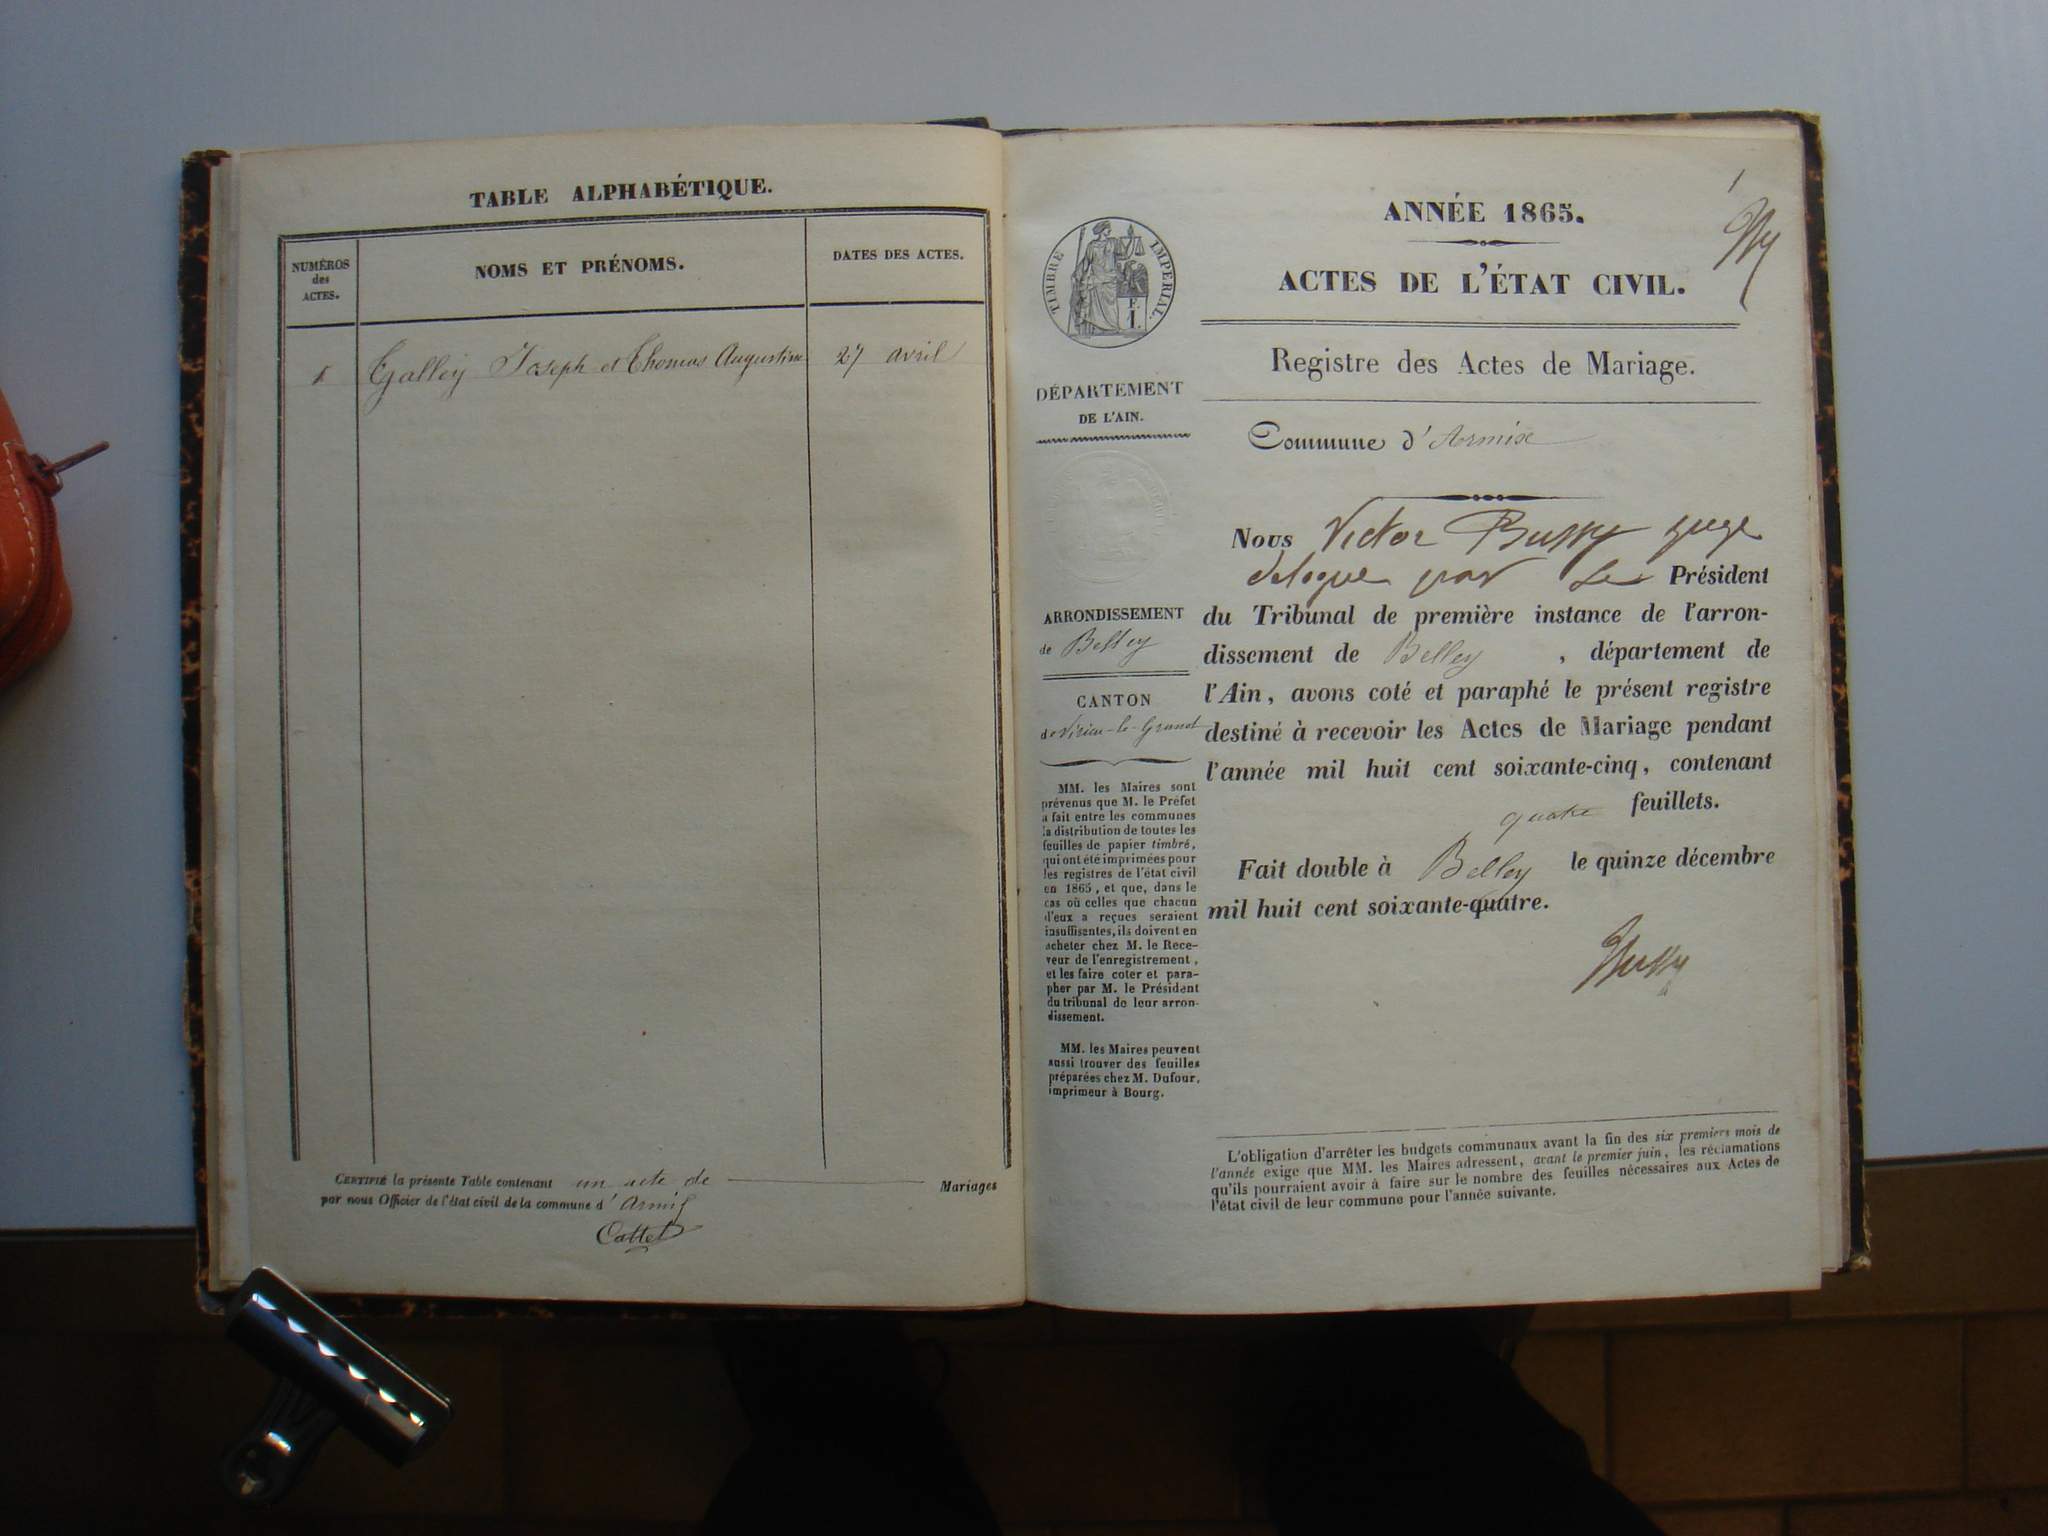 TABLE ALPHABÉTIQUE.
NUMÉROS
des
ACTES.
NOMS ET PRÉNOMS.
DATES DES ACTES.
1 Galley Joseph et Thomas Augustine 27 avril
CERTIFIÉ la présente Table contenant un acte de Mariages
par nous Officier de l'état civil de la commune d'Armix
Cattet
1
ANNÉE 1865.
ACTES DE L'ÉTAT CIVIL.
Registre des Actes de Mariage.
Commune d'Armix
TIMBRE IMPERIAL.
F.
1.
DÉPARTEMENT
DE L'AIN.
ARRONDISSEMENT
de Belley
CANTON
de Virieu-le-Grand
MM. les Maires sont
prévenus que M. le Préfet
a fait entre les communes
la distribution de toutes les
feuilles de papier timbré,
qui ont été imprimées pour
les registres de l'état civil
en 1865, et que, dans le
cas où celles que chacun
d'eux a reçues seraient
insuffisantes, ils doivent en
acheter chez M. le Rece-
veur de l'enregistrement,
et les faire coter et para-
pher par M. le Président
du tribunal de leur arron-
dissement.
MM. les Maires peuvent
aussi trouver des feuilles
préparées chez M. Dufour,
imprimeur à Bourg.
Nous Victor Bussy juge
délégué par le Président
du Tribunal de première instance de l'arron-
dissement de Belley, département de
l'Ain, avons coté et paraphé le présent registre
destiné à recevoir les Actes de Mariage pendant
l'année mil huit cent soixante-cinq, contenant
quatre feuillets.
Fait double à Belley le quinze décembre
mil huit cent soixante-quatre.
Bussy
L'obligation d'arrêter les budgets communaux avant la fin des six premiers mois de
l'année exige que MM. les Maires adressent, avant le premier juin, les réclamations
qu'ils pourraient avoir à faire sur le nombre des feuilles nécessaires aux Actes de
l'état civil de leur commune pour l'année suivante.